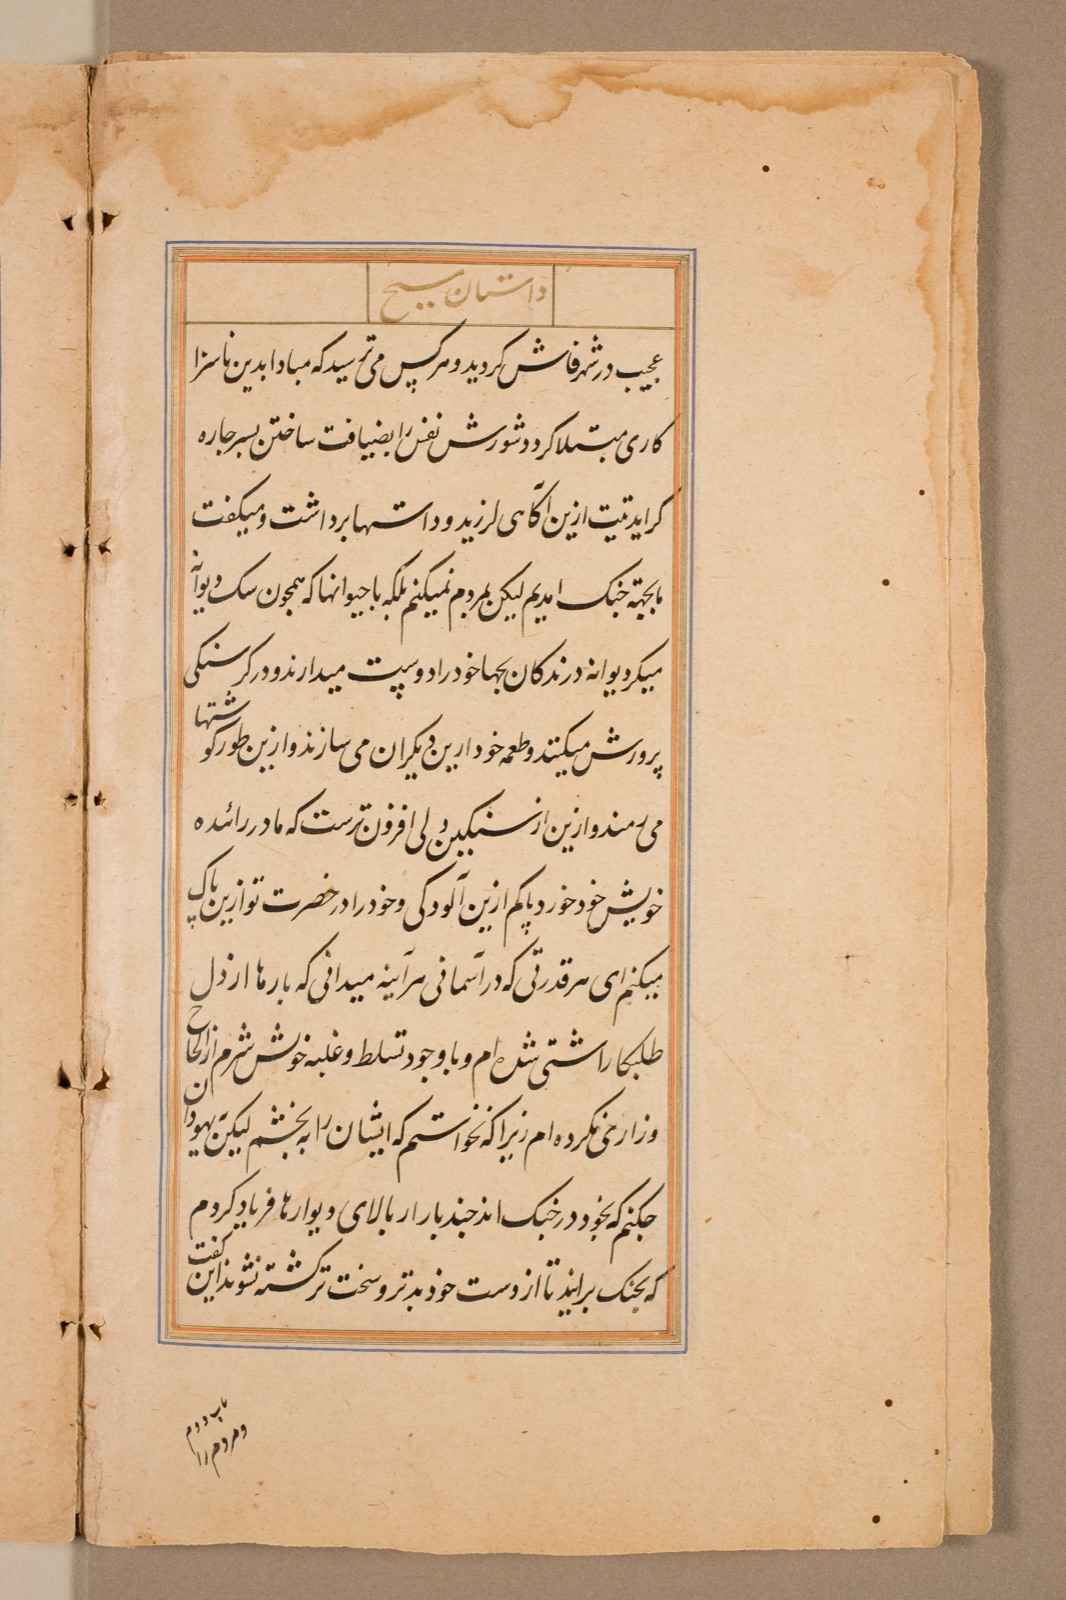 داستان مسیح
عجیب در شهر فاش کردید و هر کس می ترسید که مبادا بدین ناسزا
کاری مبتلا کردد شورش نفس را بضیافت ساختن بسر جاره
کراید تیت ازین آکاهی لرزید و داستها برداشت و میکفت
مابجهة جنک امدیم لیکن بمردم نمیکنم بلکه با حیوانها که همجون سک دیوانه
میکرد یوانه درندکان بجها خود را دوست میدارند و در کرسنکی
پرورش میکنند و طعمه خود ازین دیکران می سازند و ازین طور کوشتها
می رمند و ازین از سنکین دلی افزون ترست که مادر زائده
خویش خود خورد پاکم ازین آلودکی و خود را در حضرت تو ازین پاک
میکنم ای هر قدرتی که در آسمانی هر آینه میدانی که بارها از دل
طلبکار اشتی شده ام و با وجود تسلط و غلبه خویش شرم از الحاح
و زاری نکرده ام زیرا که نخواستم که ایشان را به بخشم لیکن یهودان
جکنم که بخود در جنک اند جند بار از بالای دیوارها فریاد کردم
که بجنک برانید تا از دست خود بدتر و سخت تر کشته نشوند این کفت
باب دوم
و مردم را